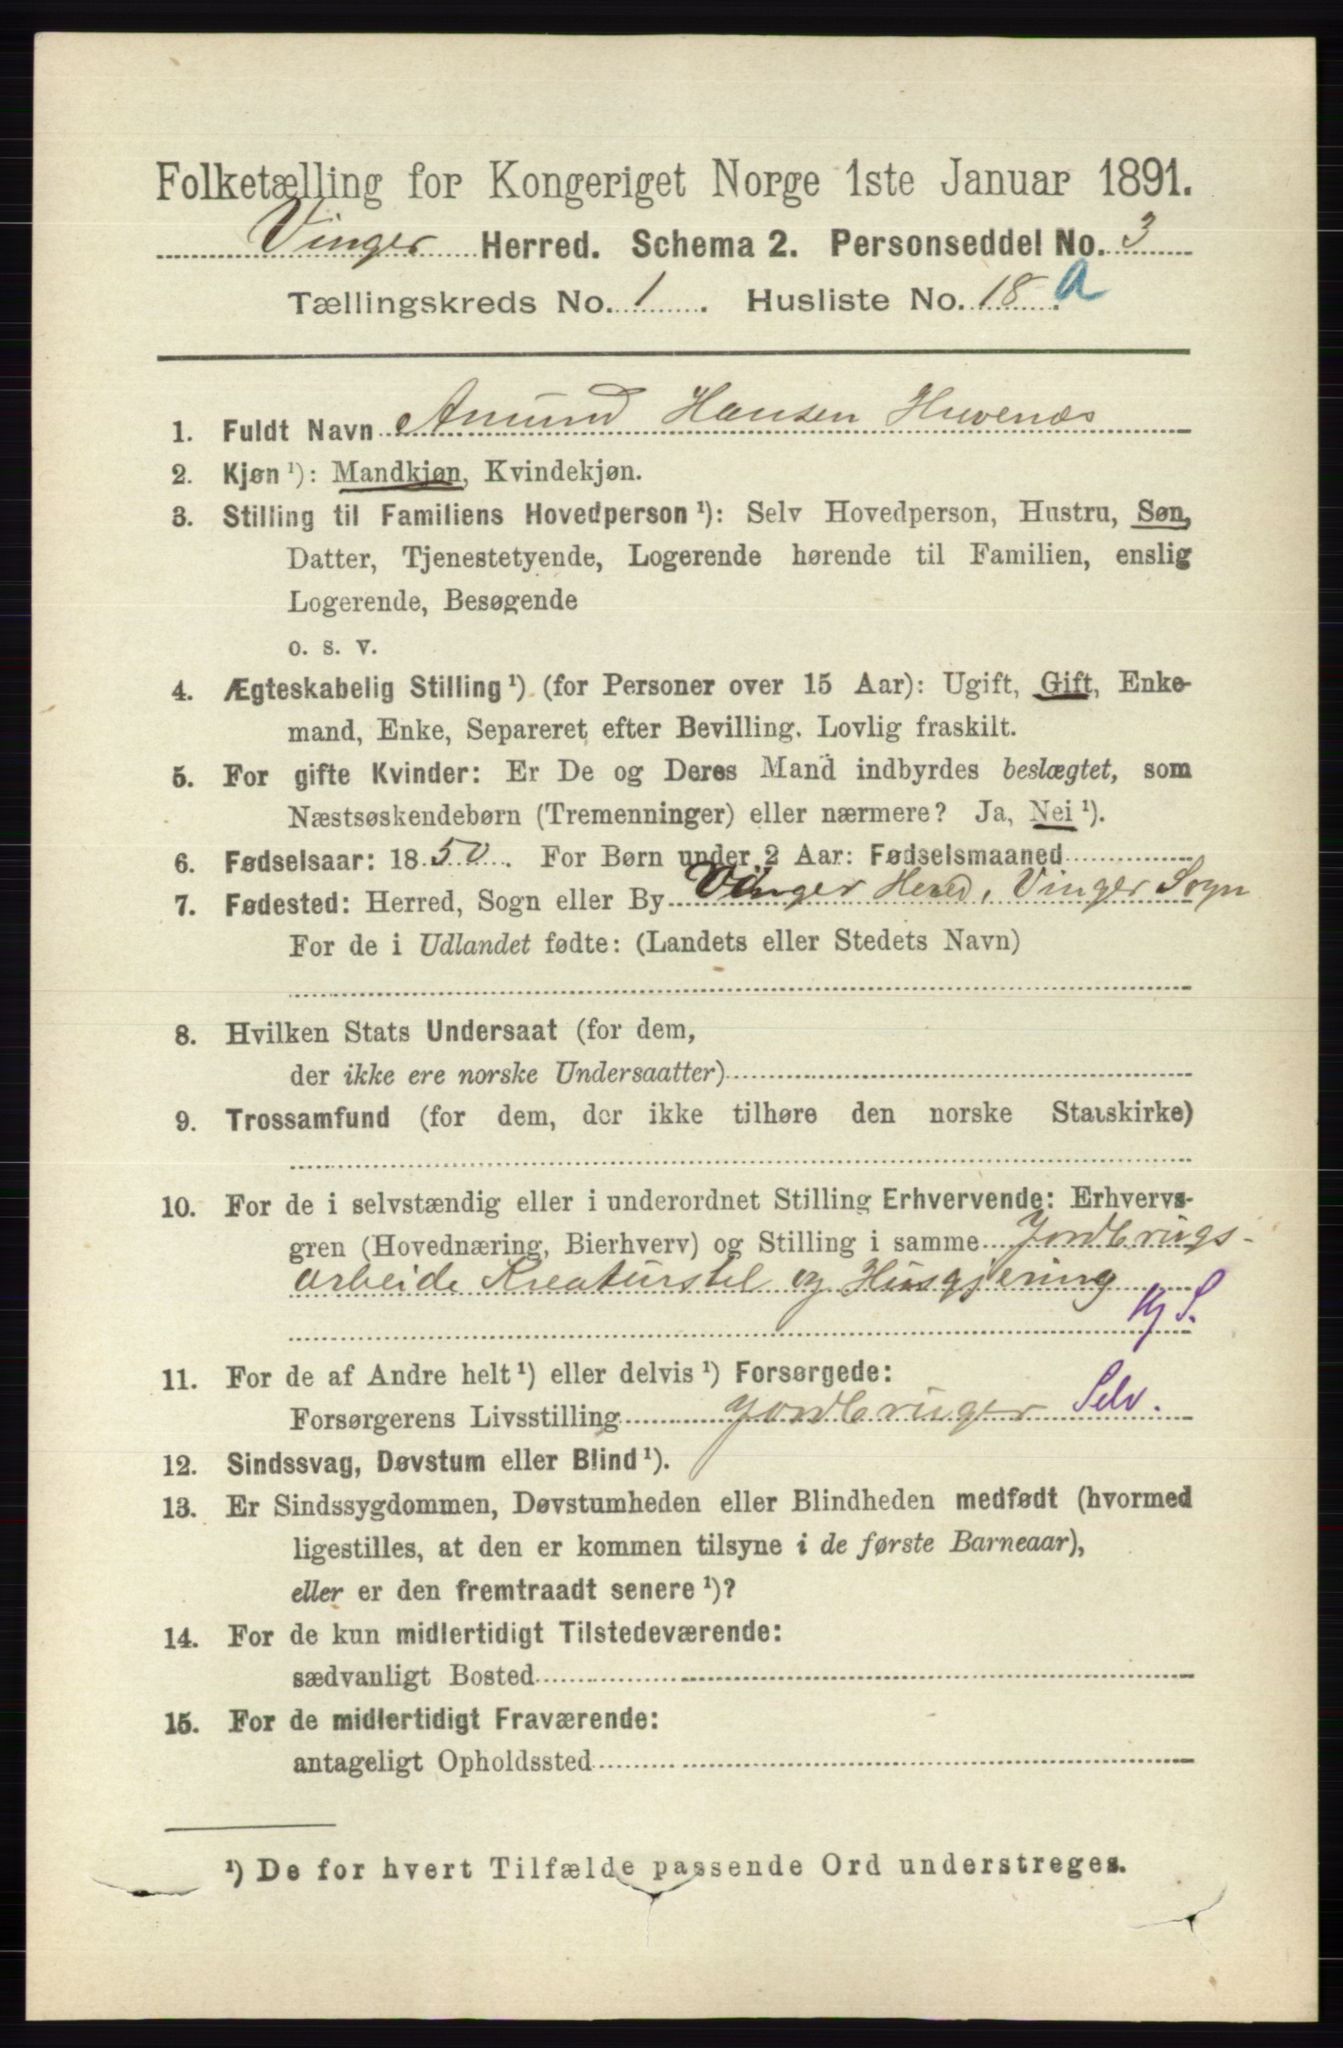 Folketælling for Kongeriget Norge 1ste Januar 1891.
Vinger Herred. Schema 2. Personseddel No. 3
Tællingskreds No. 1. Husliste No. 18 a
1. Fuldt Navn Amund Hansen Huvenæs
2. Kjøn ¹): Mandkjøn, Kvindekjøn.
3. Stilling til Familiens Hovedperson ¹): Selv Hovedperson, Hustru, Søn,
Datter, Tjenestetyende, Logerende hørende til Familien, enslig
Logerende, Besøgende
o. s. v.
4. Ægteskabelig Stilling ¹) (for Personer over 15 Aar): Ugift, Gift, Enke-
mand, Enke, Separeret efter Bevilling. Lovlig fraskilt.
5. For gifte Kvinder: Er De og Deres Mand indbyrdes beslægtet, som
Næstsøskendebørn (Tremenninger) eller nærmere? Ja, Nei ¹).
6. Fødselsaar: 1850. For Børn under 2 Aar: Fødselsmaaned
7. Fødested: Herred, Sogn eller By Vinger Herred, Vinger Sogn
For de i Udlandet fødte: (Landets eller Stedets Navn)
8. Hvilken Stats Undersaat (for dem,
der ikke ere norske Undersaatter)
9. Trossamfund (for dem, der ikke tilhøre den norske Statskirke)
10. For de i selvstændig eller i underordnet Stilling Erhvervende: Erhvervs-
gren (Hovednæring, Bierhverv) og Stilling i samme Jordbrugs-
arbeide Kreaturstel og Husgjerning
Kj S.
11. For de af Andre helt ¹) eller delvis ¹) Forsørgede:
Forsørgerens Livsstilling Jordbruger Selv.
12. Sindssvag, Døvstum eller Blind ¹).
13. Er Sindssygdommen, Døvstumheden eller Blindheden medfødt (hvormed
ligestilles, at den er kommen tilsyne i de første Barneaar),
eller er den fremtraadt senere ¹)?
14. For de kun midlertidigt Tilstedeværende:
sædvanligt Bosted
15. For de midlertidigt Fraværende:
antageligt Opholdssted
¹) De for hvert Tilfælde passende Ord understreges.